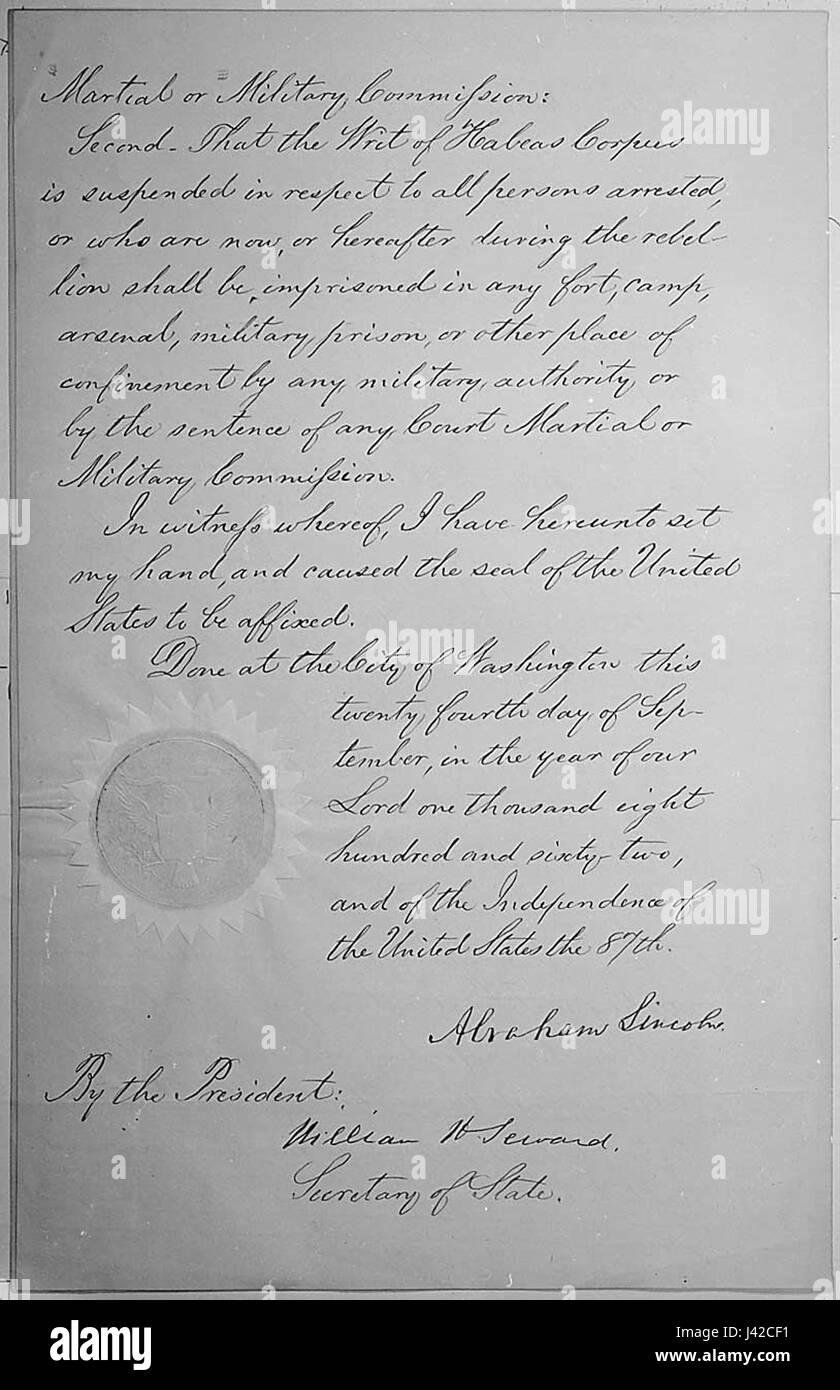 Martial or Military Commission:
Second - That the Writ of Habeas Corpus
is suspended in respect to all persons arrested,
or who are now, or hereafter during the rebel-
lion shall be, imprisoned in any fort, camp,
arsenal, military prison, or other place of
confinement by any military authority or
by the sentence of any Court Martial or
Military Commission.
In witness whereof, I have hereunto set
my hand, and caused the seal of the United
States to be affixed.
Done at the City of Washington this
twenty fourth day of Sep-
tember, in the year of our
Lord one thousand eight
hundred and sixty-two,
and of the Independence of
the United States the 87th.
Abraham Lincoln.
By the President:
William H Seward.
Secretary of State.
alamy stock photo
alamy
Image ID: J42CF1
www.alamy.com